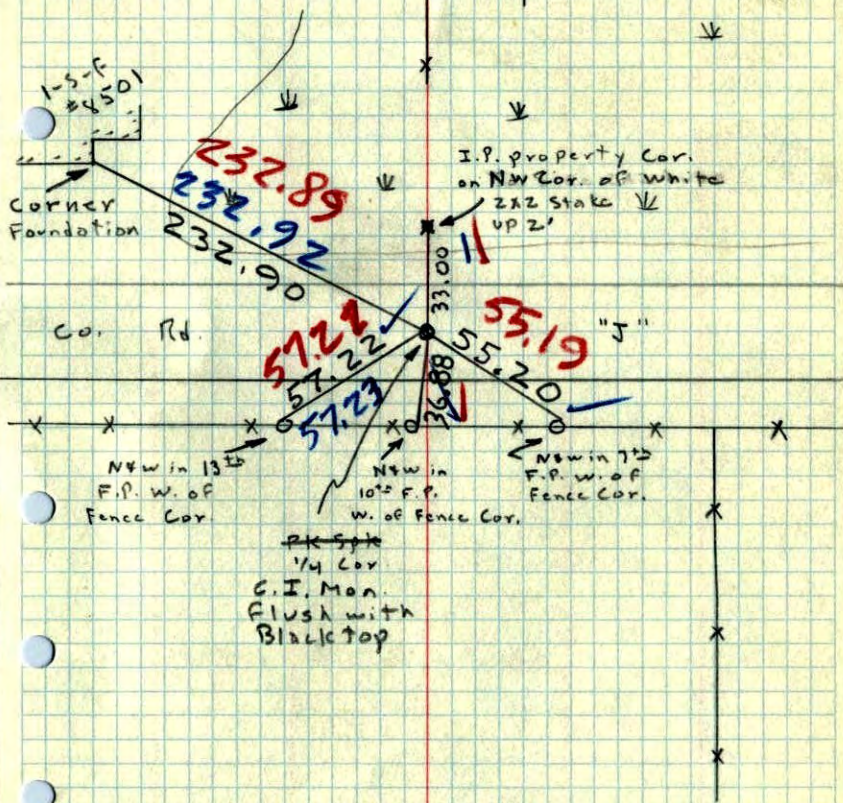 1-S-F
#8501
Corner
Foundation
232.89
232.92
232.90
I.P. property Cor.
on NW Cor. of White
2x2 Stake
up 2'
33.00
Co. Rd. "J"
57.22
57.23
55.19
55.20
36.88
N&W in 13th
F.P. W. of
Fence Cor.
N&W in
10th F.P.
W. of Fence Cor.
N&W in 7th
F.P. W. of
Fence Cor.
PK Spk
1/4 Cor
C.I. Mon.
Flush with
Blacktop